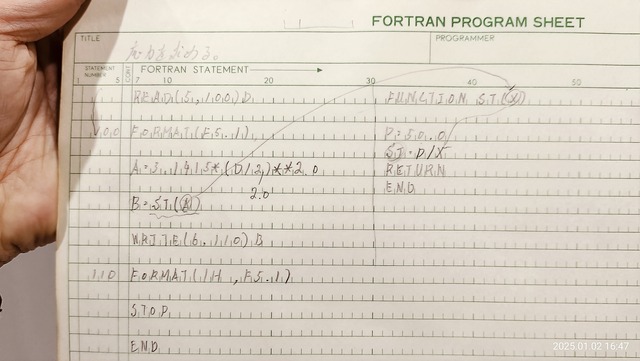 FORTRAN PROGRAM SHEET
TITLE
PROGRAMMER
STATEMENT NUMBER
CONT
FORTRAN STATEMENT
1 5 7 10 20 30 40 50
READ(5,100)D
100 FORMAT(F5.1)
A=3.1415*(D/2)**2.0
2.0
B=ST(A)
WRITE(6,110)B
110 FORMAT(1H ,F5.1)
STOP
END
FUNCTION ST(X)
P=50.0
ST=P/X
RETURN
END
2025.01.02 16:47